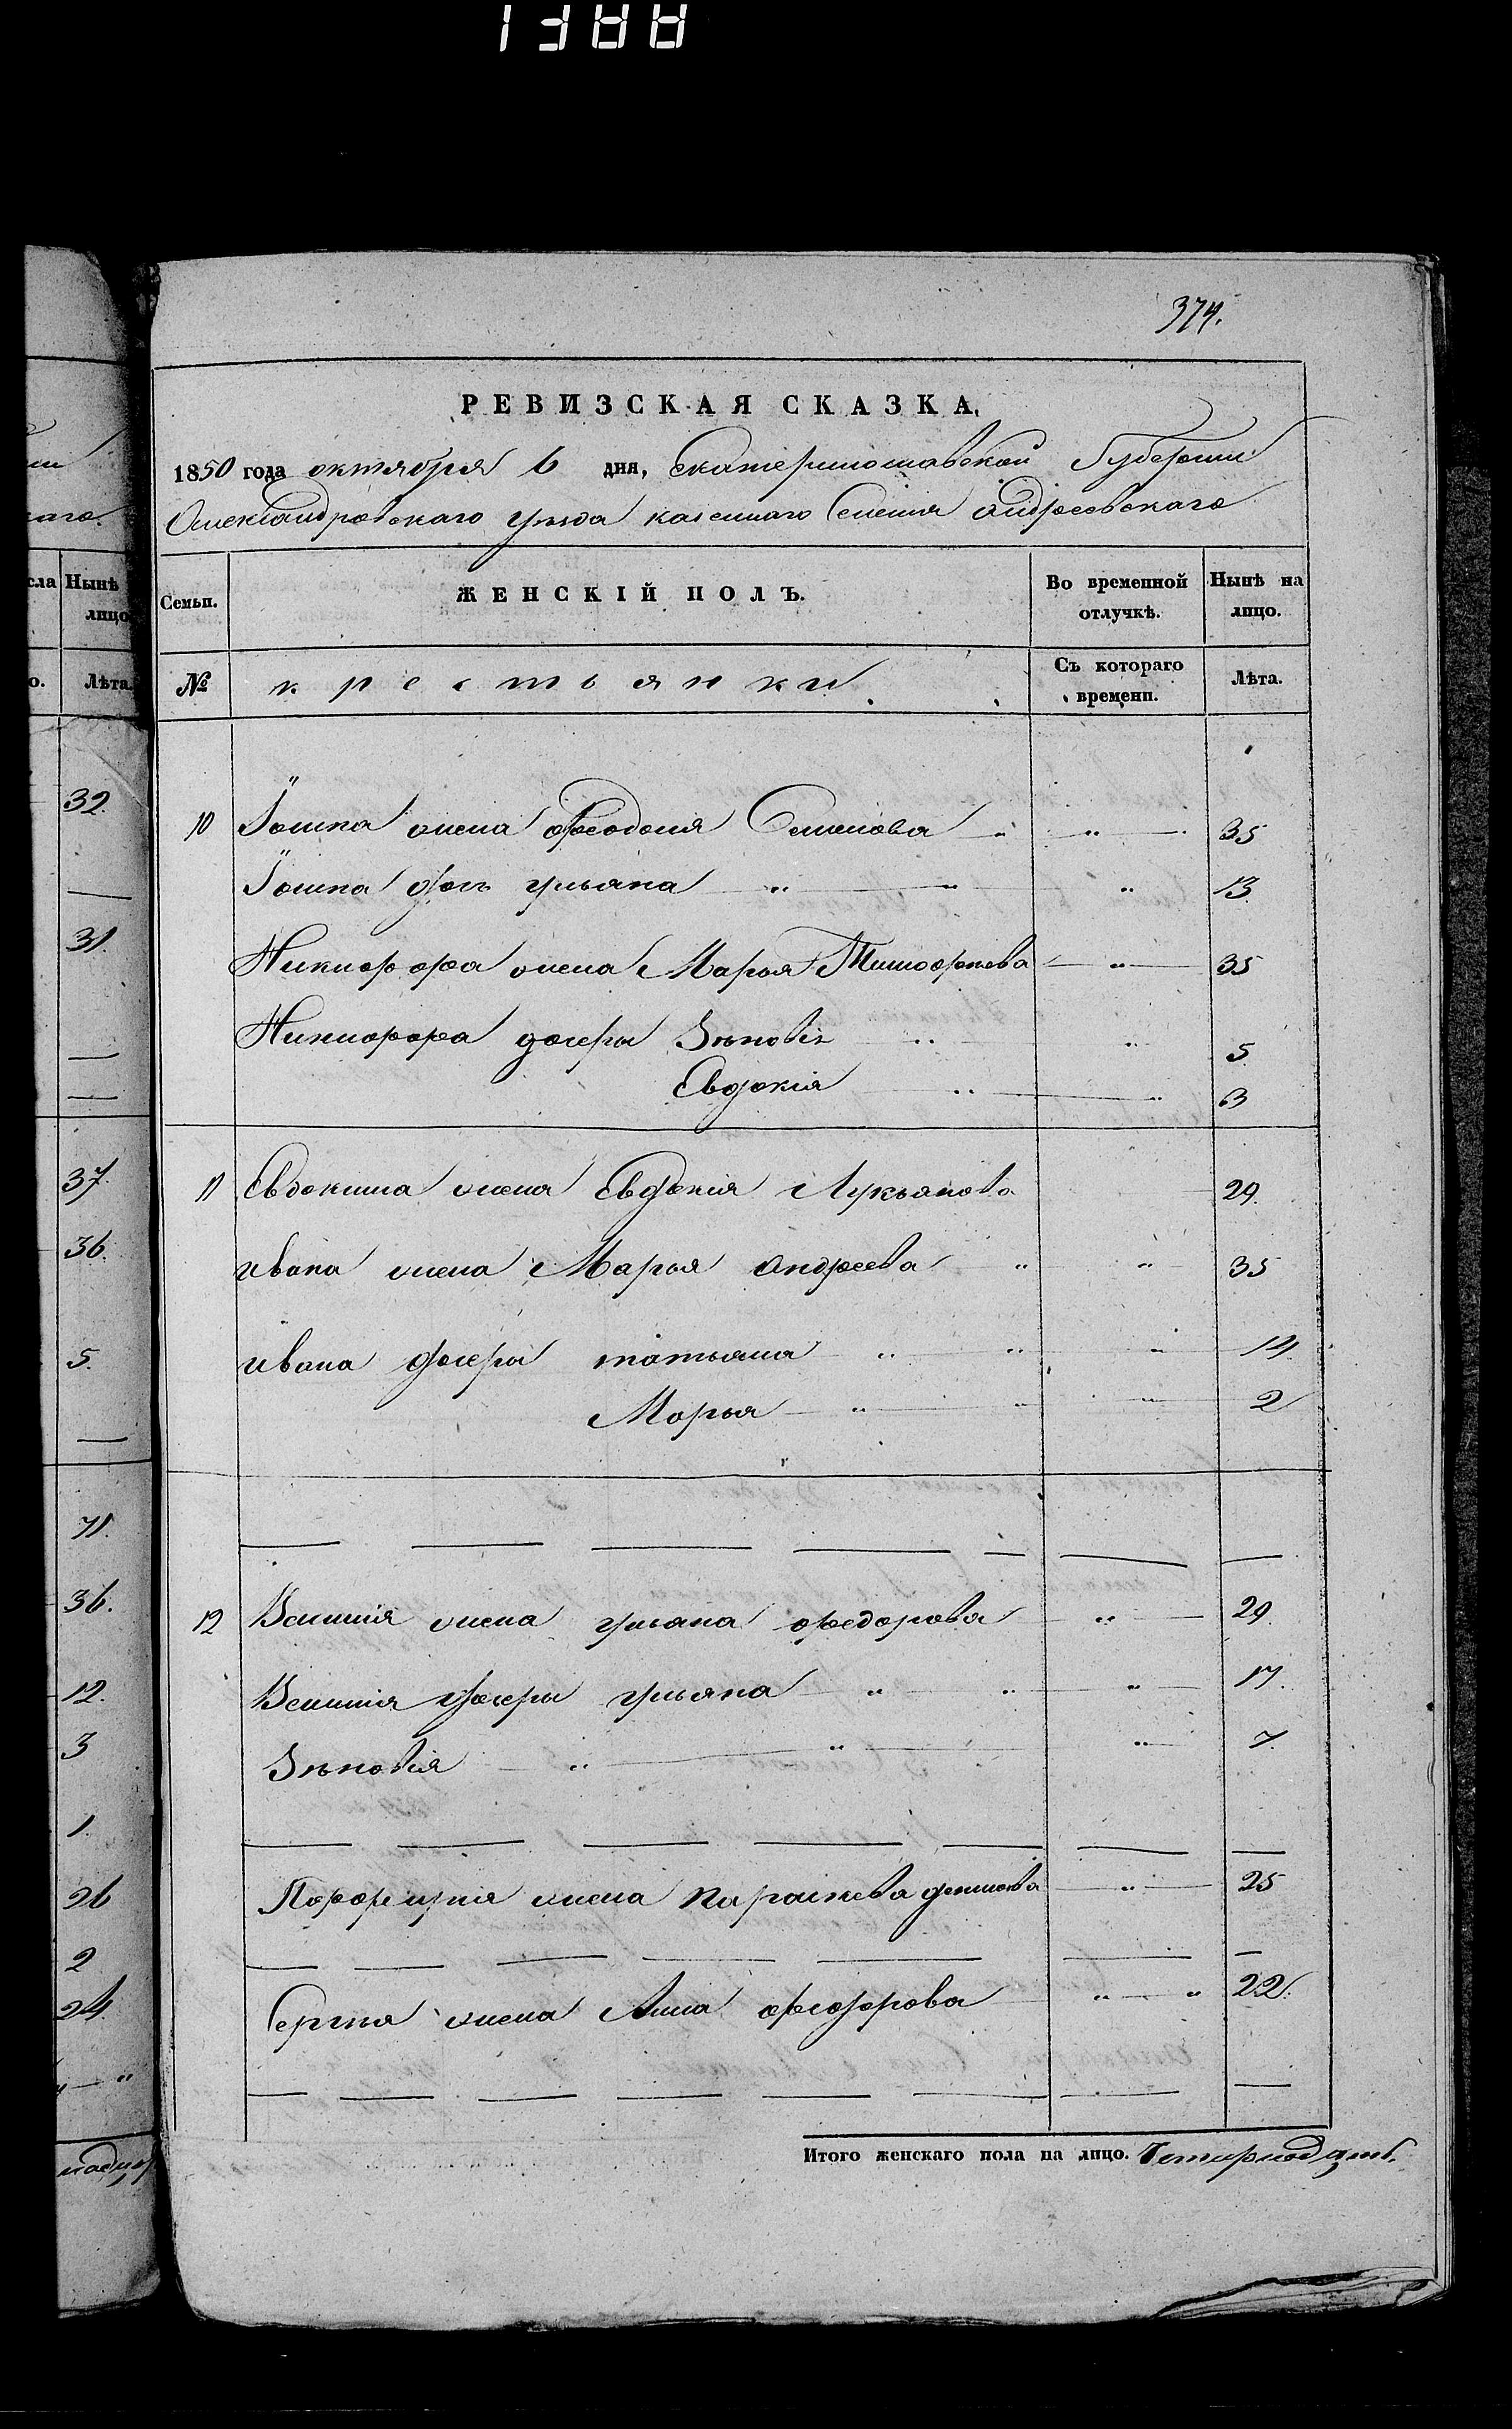 1388
374.
РЕВИЗСКАЯ СКАЗКА.
1850 года октября 6 дня, Екатеринославской Губернии
Александровскаго уѣзда казеннаго Селенія Андреевскаго
Семьи. ЖЕНСКІЙ ПОЛЪ. Во временной отлучкѣ. Нынѣ на лицо.
№ крестьянки. Съ котораго времени. Лѣта.
10 жена Феодосия Семенова " " 35
дочь Ульяна " " " 13
Никифора жена Марья Тимофеева " 35
Никифора дочери Зѣновія " " 5
Евдокія " " 3
11 Евдокима жена Евдокія Лукьянова 29.
Ивана жена Марья Андреева " " 35
Ивана дочери татьяна " " " 14
Марья " " " 2
12 жена Ульяна Федорова " 29
дочери Ульяна " " " 17.
Зѣновія " " " 7.
Порфирія жена Параскева " 25
Сергия жена Анна Феодорова " " 22.
Итого женскаго пола на лицо.
сла Нынѣ
лицо
о. Лѣта.
32.
31.
37.
36.
5.
71.
36.
12.
3
1.
26
2
24.